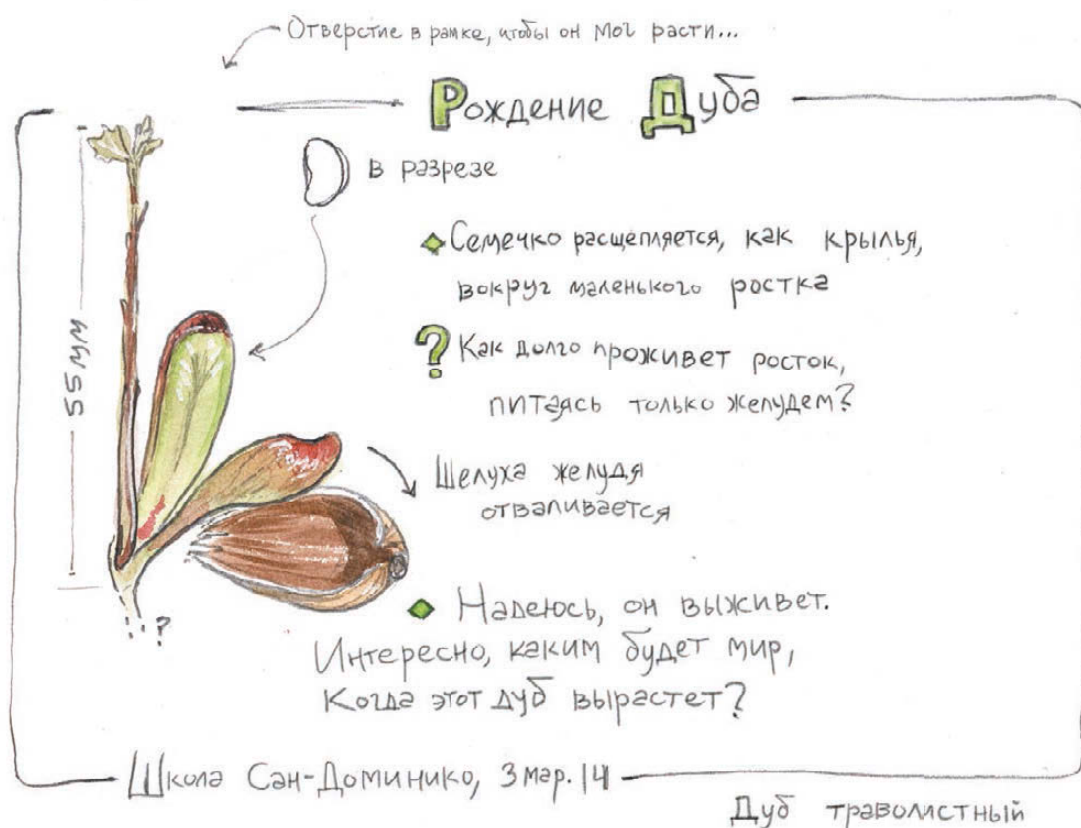 Отверстие в рамке, чтобы он мог расти...
Рождение Дуба
в разрезе
Семечко расщепляется, как крылья,
вокруг маленького ростка
? Как долго проживет росток,
питаясь только желудем?
55мм
Шелуха желудя
отваливается
?
Надеюсь, он выживет.
Интересно, каким будет мир,
Когда этот дуб вырастет?
Школа Сан-Доминико, 3 мар. 14
Дуб траволистный